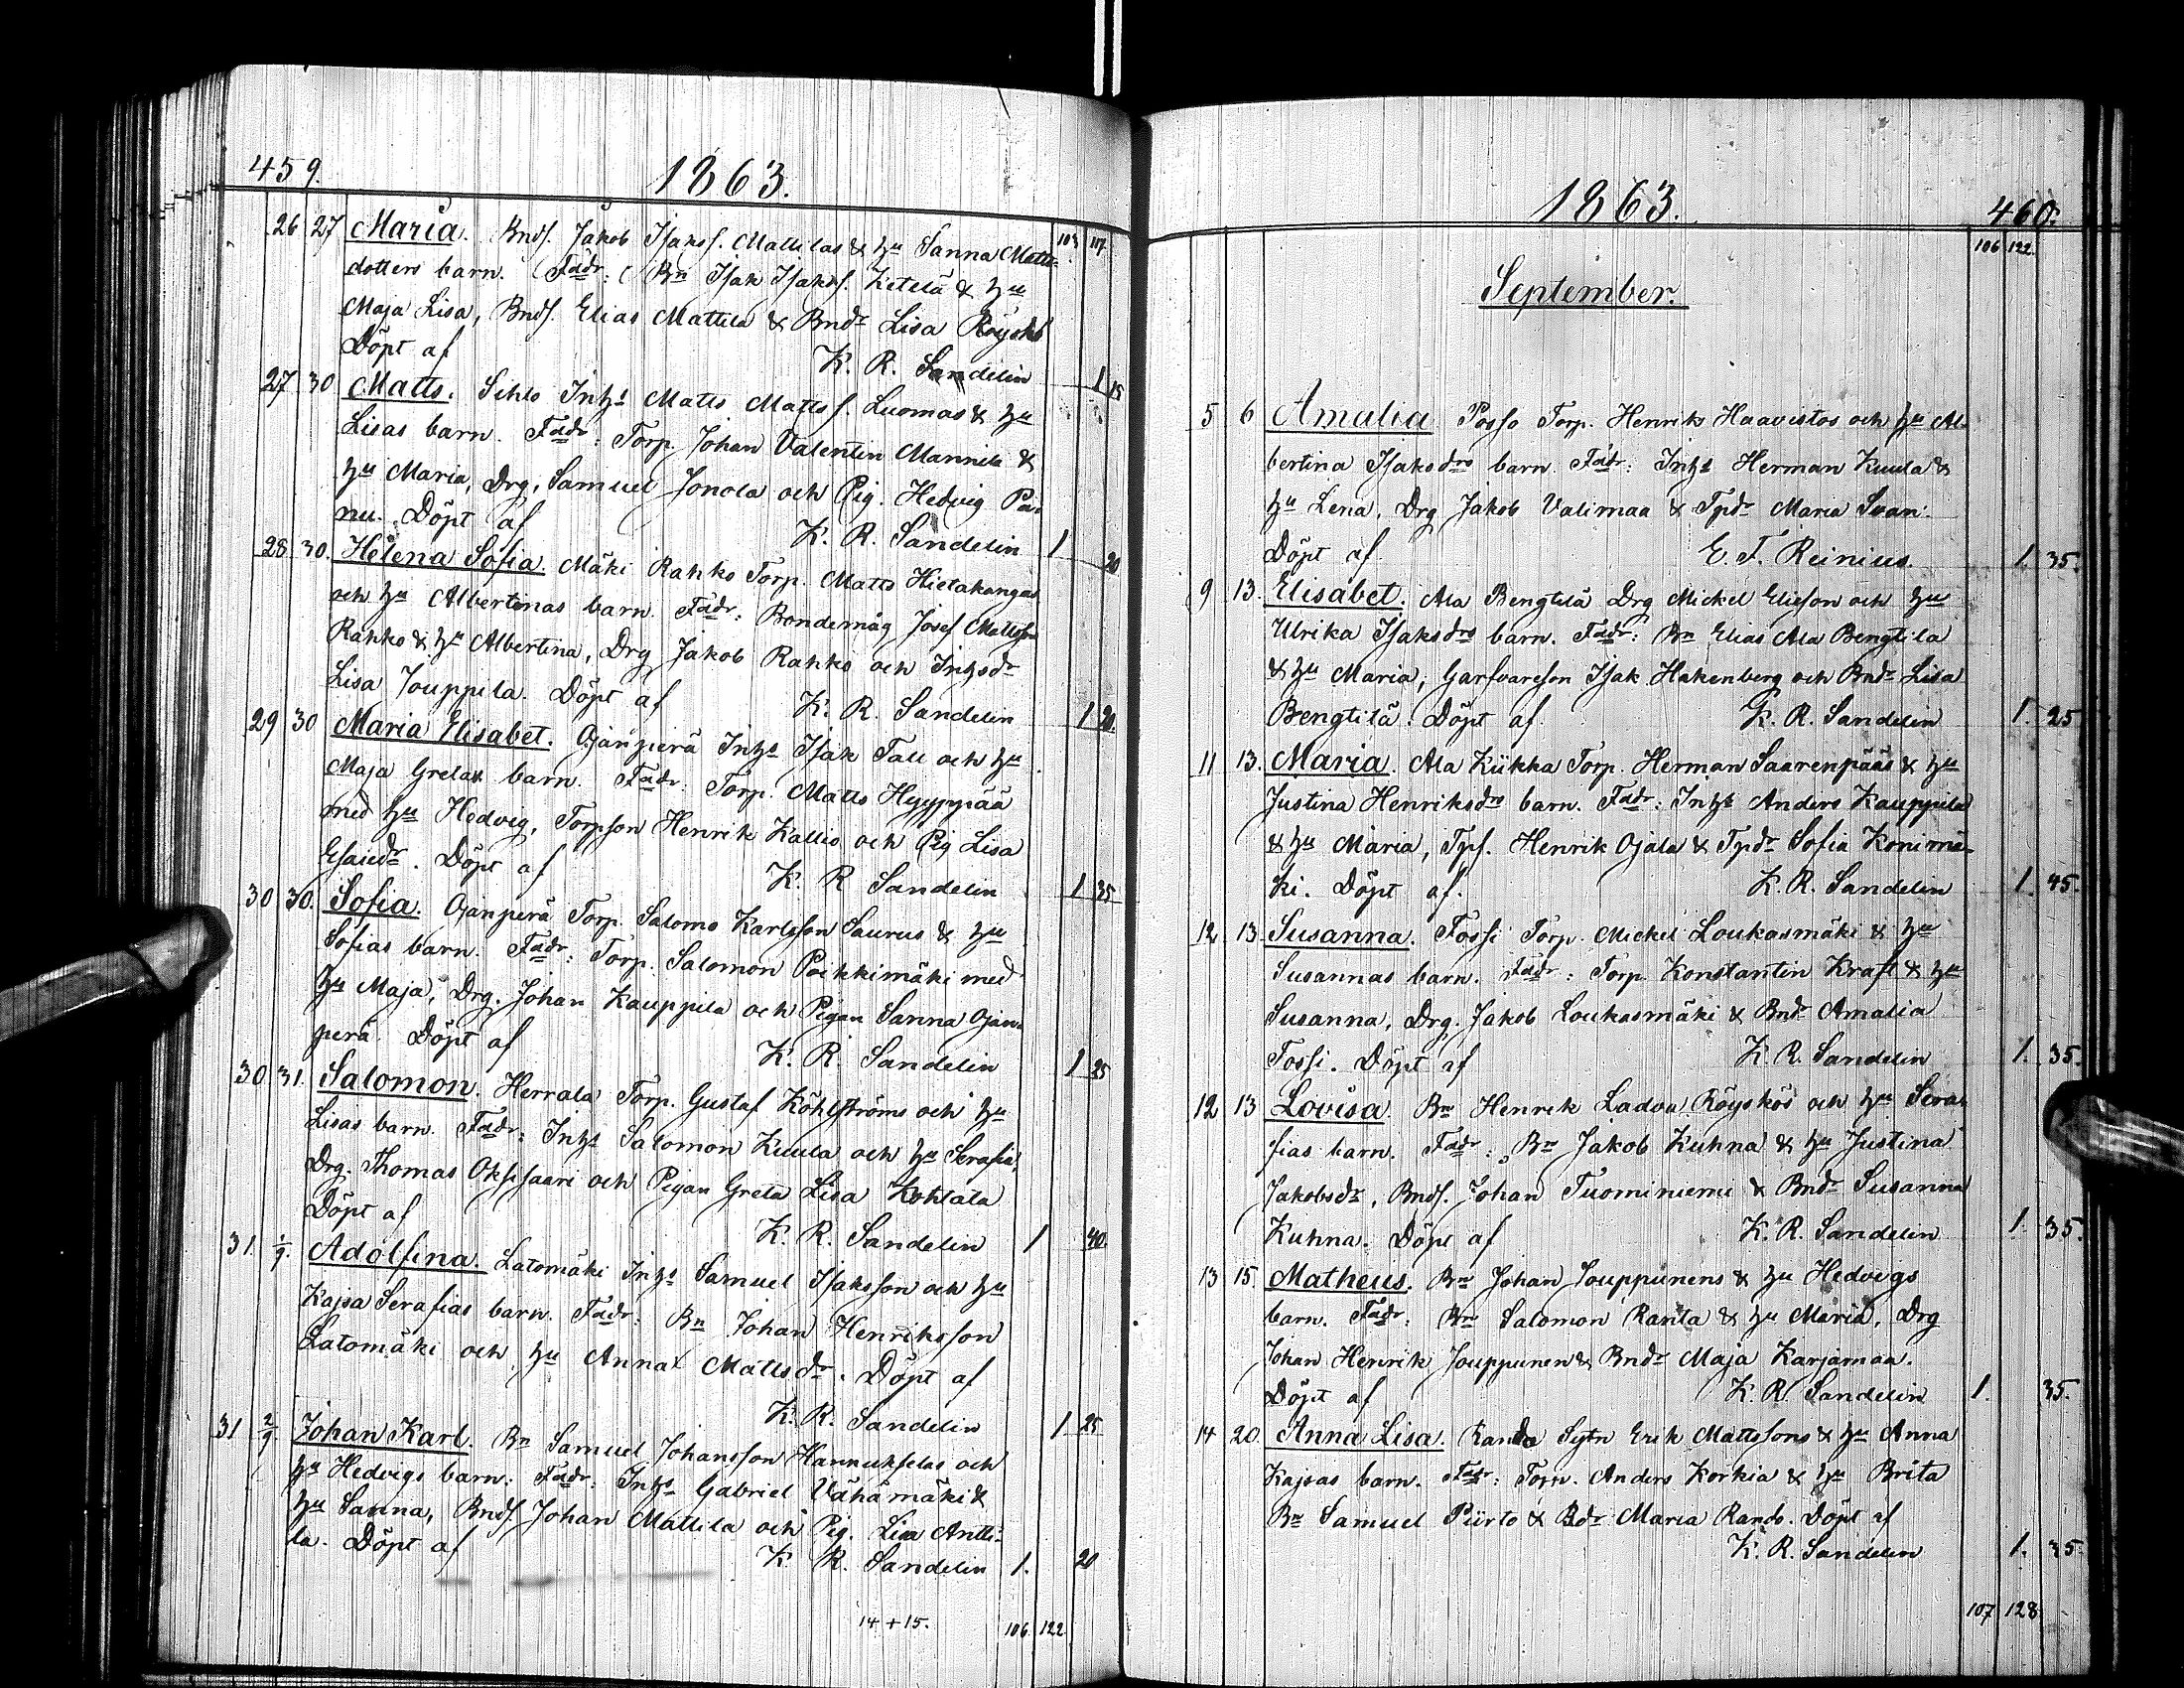 459. 1863.
103 107
26 27 Maria. Bnds. Jakob Isakss. Mattilas & hu Sanna Matts-
dotters barn. Fadr: Bn Isak Isakss. Ketelä & hu
Maja Lisa, Bnds. Elias Mattila & Bndr Lisa Röyskö
Döpt af K. R. Sandelin 1 15
27 30 Matts. Sehlo Inhs Matts Mattss. Luomas & hu
Lisas barn. Fadr: Torp. Johan Valentin Mannila &
hu Maria, Drg. Samuel Jonola och Pig. Hedvig
nu. Döpt af K. R. Sandelin 1 20
28 30. Helena Sofia. Mäki Rahko Torp. Matts Hietakangas
och hu Albertinas barn. Fadr: Bondemåg Josef Mattsson
Rahko & hu Albertina, Drg Jakob Rahko och Inhsdr
Lisa Jouppila. Döpt af K. R. Sandelin 1 20.
29 30 Maria Elisabet. Ojanperä Inhs Isak Tall och hu
Maja Gretas barn. Fadr: Torp. Matts Hyyppää
med hu Hedvig, Torpson Henrik Kallio och Pig Lisa
Esaiedr. Döpt af K. R Sandelin 1 35
30 30. Sofia. Ojanperä Torp. Salomo Karlsson Saurus & hu
Sofias barn. Fadr: Torp. Salomon Poikkimäki med
hu Maja, Drg. Johan Kauppila och Pigan Sanna Ojan-
perä. Döpt af K. R. Sandelin 1 25
30. 31. Salomon. Herrala Torp. Gustaf Köhlströms och hu
Lisas barn. Fadr: Inhs Salomon Kuula och hu Serafia,
Drg. Thomas Oksisaari och Pigan Greta Lisa Kohtala
Döpt af K. R. Sandelin 1 40.
31. 1/9. Adolfina. Latomäki Inhs Samuel Isaksson och hu
Kajsa Serafias barn. Fadr: Bn Johan Henriksson
Latomäki och hu Anna Mattsdr. Döpt af
K. R. Sandelin 1 25
31 2/9. Johan Karl. Bn Samuel Johansson Hannukselas och
hu Hedvigs barn: Fadr: Inhs Gabriel Vähämäki &
hu Sanna, Bnds. Johan Mattila och Pig. Lisa Antti-
la. Döpt af K R. Sandelin 1. 20
14 + 15. 106. 122
1863. 460.
106 122
September.
5 6 Amalia Posso Torp. Henriks Haavistos och hu Al-
bertina Isaksdrs barn. Fadr: Inhs Herman Kuula &
hu Lena, Drg Jakob Valimaa & Tpdr Maria Svan.
Döpt af E. F. Reinius. 1. 35.
9 13. Elisabet. Ala Bengtilä Drg Mickel Eliesson och hu
Ulrika Isaksdrs barn. Fadr: Bn Elias Ala Bengtila
& hu Maria, Garfvareson Isak Hakenberg och Bndr Lisa
Bengtilä. Döpt af K. R. Sandelin 1. 25
11 13. Maria. Ala Kiikka Torp. Herman Saarenpääs & hu
Justina Henriksdrs barn. Fadr: Inhs Anders Kauppila
& hu Maria, Tps. Henrik Ojala & Tpdr Sofia Konimä-
ki. Döpt af. K. R. Sandelin 1. 45.
12 13 Susanna. Fossi Torp. Mickel Loukasmäki & hu
Susannas barn. Fadr: Torp. Konstantin Kraft & hu
Susanna, Drg. Jakob Loukasmäki & Bndr Amalia
Fossi. Döpt af K. R. Sandelin 1. 35.
12 13 Lovisa. Bn Henrik Ladva Röyskös och hu Sera-
fias barn. Fadr: Bn Jakob Kuhna & hu Justina
Jakobsdr, Bnds. Johan Tuominiemi & Bndr Susanna
Kuhna. Döpt af K. R. Sandelin 1. 35.
13 15. Matheus. Bn Johan Jouppunens & hu Hedvigs
barn. Fadr: Bn Salomon Ranta & hu Maria, Drg
Johan Henrik Jouppunen & Bndr Maja Karjamaa.
Döpt af K. R. Sandelin 1. 35.
14 20. Anna Lisa. Rando Sytn Erik Mattssons & hu Anna
Kajsas barn. Fadr: Torp. Anders Korkia & hu Brita
Bn Samuel Piirto & Bdr Maria Rando. Döpt af
K. R. Sandelin 1. 35.
107 128